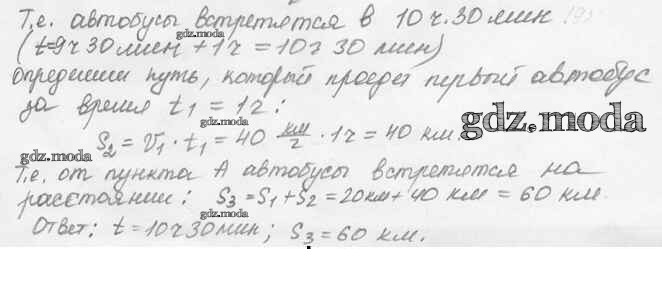 Т.е. автобусы встретятся в 10 ч. 30 мин
gdz.moda
(t=9ч 30 мин + 1ч = 10ч 30 мин)
Определим путь, который проедет первый автобус
за время t₁ = 1ч:
gdz.moda
S₂ = V₁ · t₁ = 40 км/ч · 1ч = 40 км.
gdz.moda
gdz.moda
Т.е. от пункта А автобусы встретятся на
расстоянии: S₃ = S₁ + S₂ = 20км + 40 км = 60 км.
gdz.moda
Ответ: t = 10ч 30мин; S₃ = 60 км.